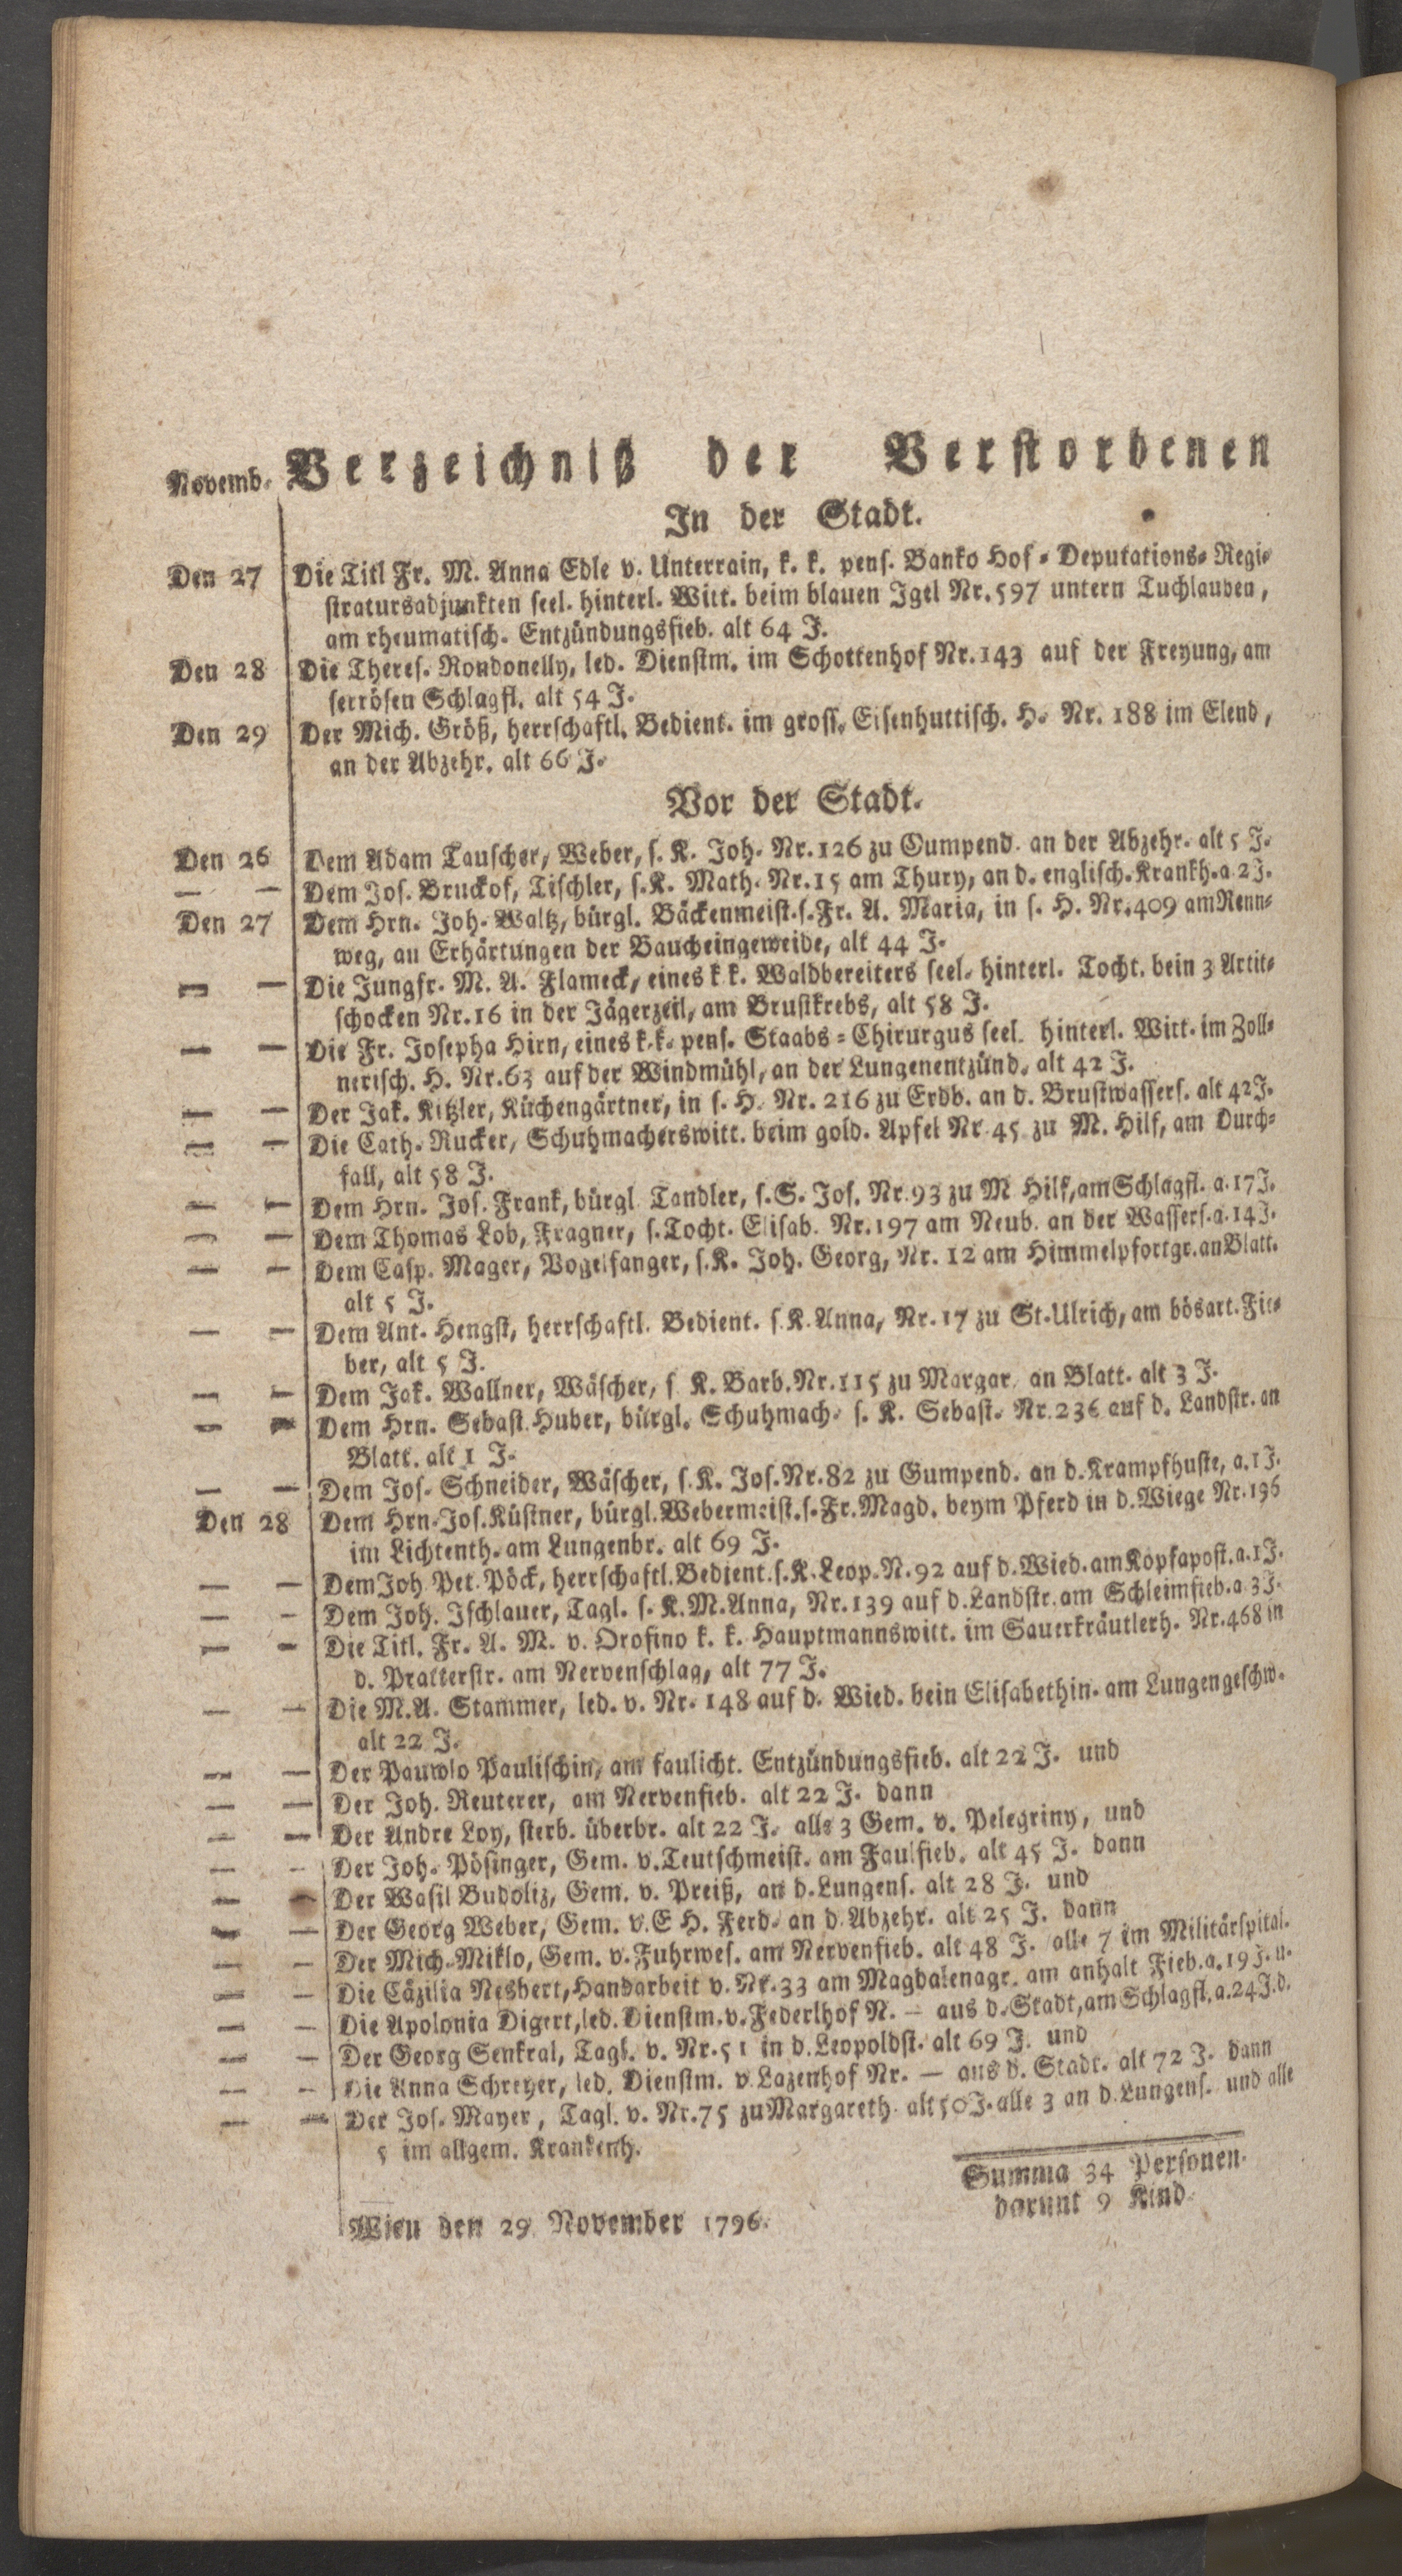 Novemb. Verzeichniß der Verstorbenen
In der Stadt.
Den 27 Die Titl Fr. M. Anna Edle v. Unterrain, k. k. pens. Banko Hof-Deputations-Regi-
stratursadjunkten seel. hinterl. Witt. beim blauen Igel Nr. 597 untern Tuchlauben,
am rheumatisch. Entzündungsfieb. alt 64 J.
Den 28 Die Theres. Rondonelly, led. Dienstm. im Schottenhof Nr. 143 auf der Freyung, am
serrösen Schlagfl. alt 54 J.
Den 29 Der Mich. Größ, herrschaftl. Bedient. im gross. Eisenhuttisch. H. Nr. 188 im Elend,
an der Abzehr. alt 66 J.
Vor der Stadt.
Den 26 Dem Adam Tauscher, Weber, s. K. Joh. Nr. 126 zu Gumpend. an der Abzehr. alt 5 J.
— — Dem Jos. Bruckof, Tischler, s. K. Math. Nr. 15 am Thury, an d. englisch. Krankh. a. 2 J.
Den 27 Dem Hrn. Joh. Waltz, bürgl. Bäckenmeist. s. Fr. A. Maria, in s. H. Nr. 409 am Renn-
weg, an Erhärtungen der Baucheingeweide, alt 44 J.
— — Die Jungfr. M. A. Flameck, eines k k. Waldbereiters seel. hinterl. Tocht. bein 3 Artit-
schocken Nr. 16 in der Jägerzeil, am Brustkrebs, alt 58 J.
— — Die Fr. Josepha Hirn, eines k. k. pens. Staabs-Chirurgus seel. hinterl. Witt. im Zoll-
nerisch. H. Nr. 63 auf der Windmühl, an der Lungenentzünd. alt 42 J.
— — Der Jak. Kitzler, Küchengärtner, in s. H. Nr. 216 zu Erdb. an d. Brustwassers. alt 42 J.
— — Die Cath. Rucker, Schuhmacherswitt. beim gold. Apfel Nr. 45 zu M. Hilf, am Durch-
fall, alt 58 J.
— — Dem Hrn. Jos. Frank, bürgl. Tandler, s. S. Jos. Nr. 93 zu M Hilf, am Schlagfl. a. 17 J.
— — Dem Thomas Lob, Fragner, s. Tocht. Elisab. Nr. 197 am Neub. an der Wassers. a. 14 J.
— — Dem Casp. Mager, Vogelfanger, s. K. Joh. Georg, Nr. 12 am Himmelpfortgr. an Blatt.
alt 5 J.
— — Dem Ant. Hengst, herrschaftl. Bedient. s. K. Anna, Nr. 17 zu St. Ulrich, am bösart. Fie-
ber, alt 5 J.
— — Dem Jak. Wallner, Wäscher, s K. Barb. Nr. 115 zu Margar. an Blatt. alt 3 J.
— — Dem Hrn. Sebast. Huber, bürgl. Schuhmach. s. K. Sebast. Nr. 236 auf d. Landstr. an
Blatt. alt 1 J.
— — Dem Jos. Schneider, Wäscher, s. K. Jos. Nr. 82 zu Gumpend. an d. Krampfhuste, a. 1 J.
Den 28 Dem Hrn. Jos. Küstner, bürgl. Webermeist. s. Fr. Magd. beym Pferd in d. Wiege Nr. 196
im Lichtenth. am Lungenbr. alt 69 J.
— — Dem Joh Pet. Pöck, herrschaftl. Bedient. s. K. Leop. N. 92 auf d. Wied. am Kopfapost. a. 1 J.
— — Dem Joh. Ischlauer, Tagl. s. K. M. Anna, Nr. 139 auf d. Landstr. am Schleimfieb. a 3 J.
— — Die Titl. Fr. A. M. v. Orofino k. k. Hauptmannswitt. im Sauerkräutlerh. Nr. 468 in
d. Pratterstr. am Nervenschlag, alt 77 J.
— — Die M. A. Stammer, led. v. Nr. 148 auf d. Wied. bein Elisabethin. am Lungengeschw.
alt 22 J.
— — Der Pauwlo Paulischin, am faulicht. Entzündungsfieb. alt 22 J. und
— — Der Joh. Reuterer, am Nervenfieb. alt 22 J. dann
— — Der Andre Loy, sterb. überbr. alt 22 J. alle 3 Gem. v. Pelegriny, und
— — Der Joh. Pösinger, Gem. v. Teutschmeist. am Faulfieb. alt 45 J. dann
— — Der Wasil Budoliz, Gem. v. Preiß, an d. Lungens. alt 28 J. und
— — Der Georg Weber, Gem. v. E H. Ferd. an d. Abzehr. alt 25 J. dann
— — Der Mich. Miklo, Gem. v. Fuhrwes. am Nervenfieb. alt 48 J. alle 7 im Militärspital.
— — Die Cäzilia Nesbert, Handarbeit v. Nr. 33 am Magdalenagr. am anhalt Fieb. a. 19 J. u.
— — Die Apolonia Digert, led. Dienstm. v. Federlhof N. — aus d. Stadt, am Schlagfl. a. 24 J. d.
— — Der Georg Senkral, Tagl. v. Nr. 51 in d. Leopoldst. alt 69 J. und
— — Die Anna Schreyer, led. Dienstm. v. Lazenhof Nr. — aus d. Stadt. alt 72 J. dann
— — Der Jos. Mayer, Tagl. v. Nr. 75 zu Margareth. alt 50 J. alle 3 an d. Lungens. und alle
5 im allgem. Krankenh.
Summa 34 Personen.
darunt 9 Kind.
Wien den 29 November 1796.